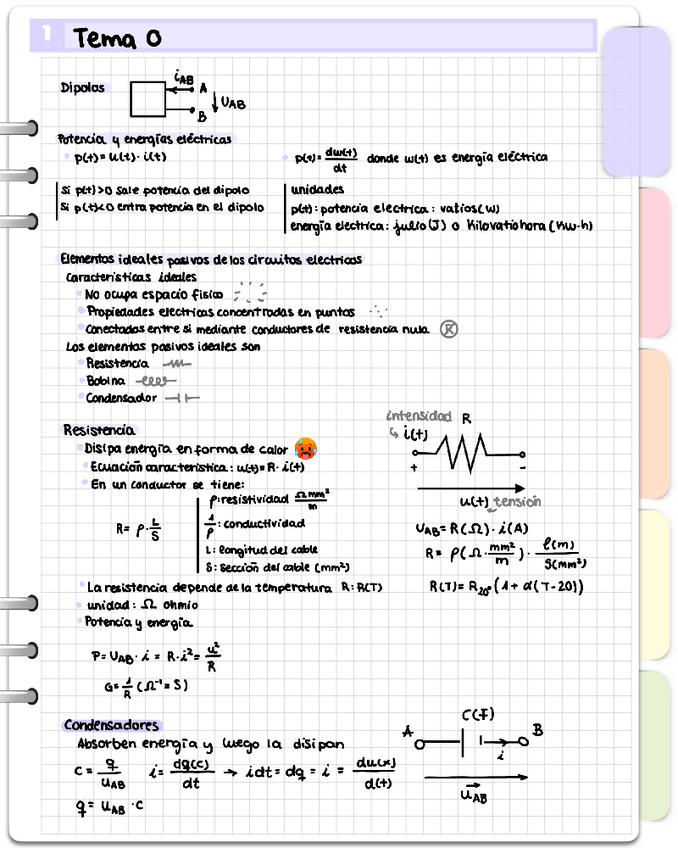 1 Tema 0
Dipolos
iAB A
UAB
B
Potencia y energías eléctricas
p(t) = u(t) · i(t)
p(t) = dw(t)/dt donde w(t) es energía eléctrica
Si p(t)>0 sale potencia del dipolo
Si p(t)<0 entra potencia en el dipolo
unidades
p(t): potencia electrica: vatios(w)
energía electrica: julio(J) o Kilovatiohora (Kw-h)
Elementos ideales pasivos de los circuitos electricos
Características ideales
No ocupa espacio fisico
Propiedades electricas concentradas en puntos
Conectados entre si mediante conductores de resistencia nula. R
Los elementos pasivos ideales son
Resistencia
Bobina
Condensador
Resistencia
Disipa energía en forma de calor
Ecuación característica: u(t)=R· i(t)
En un conductor se tiene:
R = ρ · L/S
ρ: resistividad Ω mm²/m
1/ρ: conductividad
L: longitud del cable
S: sección del cable (mm²)
intensidad R
i(t)
+ -
u(t) tensión
UAB = R(Ω) · i(A)
R = ρ(Ω · mm²/m) · ℓ(m)/S(mm²)
La resistencia depende de la temperatura R: R(T)
R(T) = R20º (1 + α(T-20))
unidad: Ω ohmio
Potencia y energía
P = UAB · i = R·i² = u²/R
G = 1/R (Ω⁻¹ = S)
Condensadores
Absorben energía y luego la disipan
C = q/UAB i = dq(c)/dt → idt = dq = i = du(x)/d(t)
q = UAB · C
C(F)
A B
i
UAB